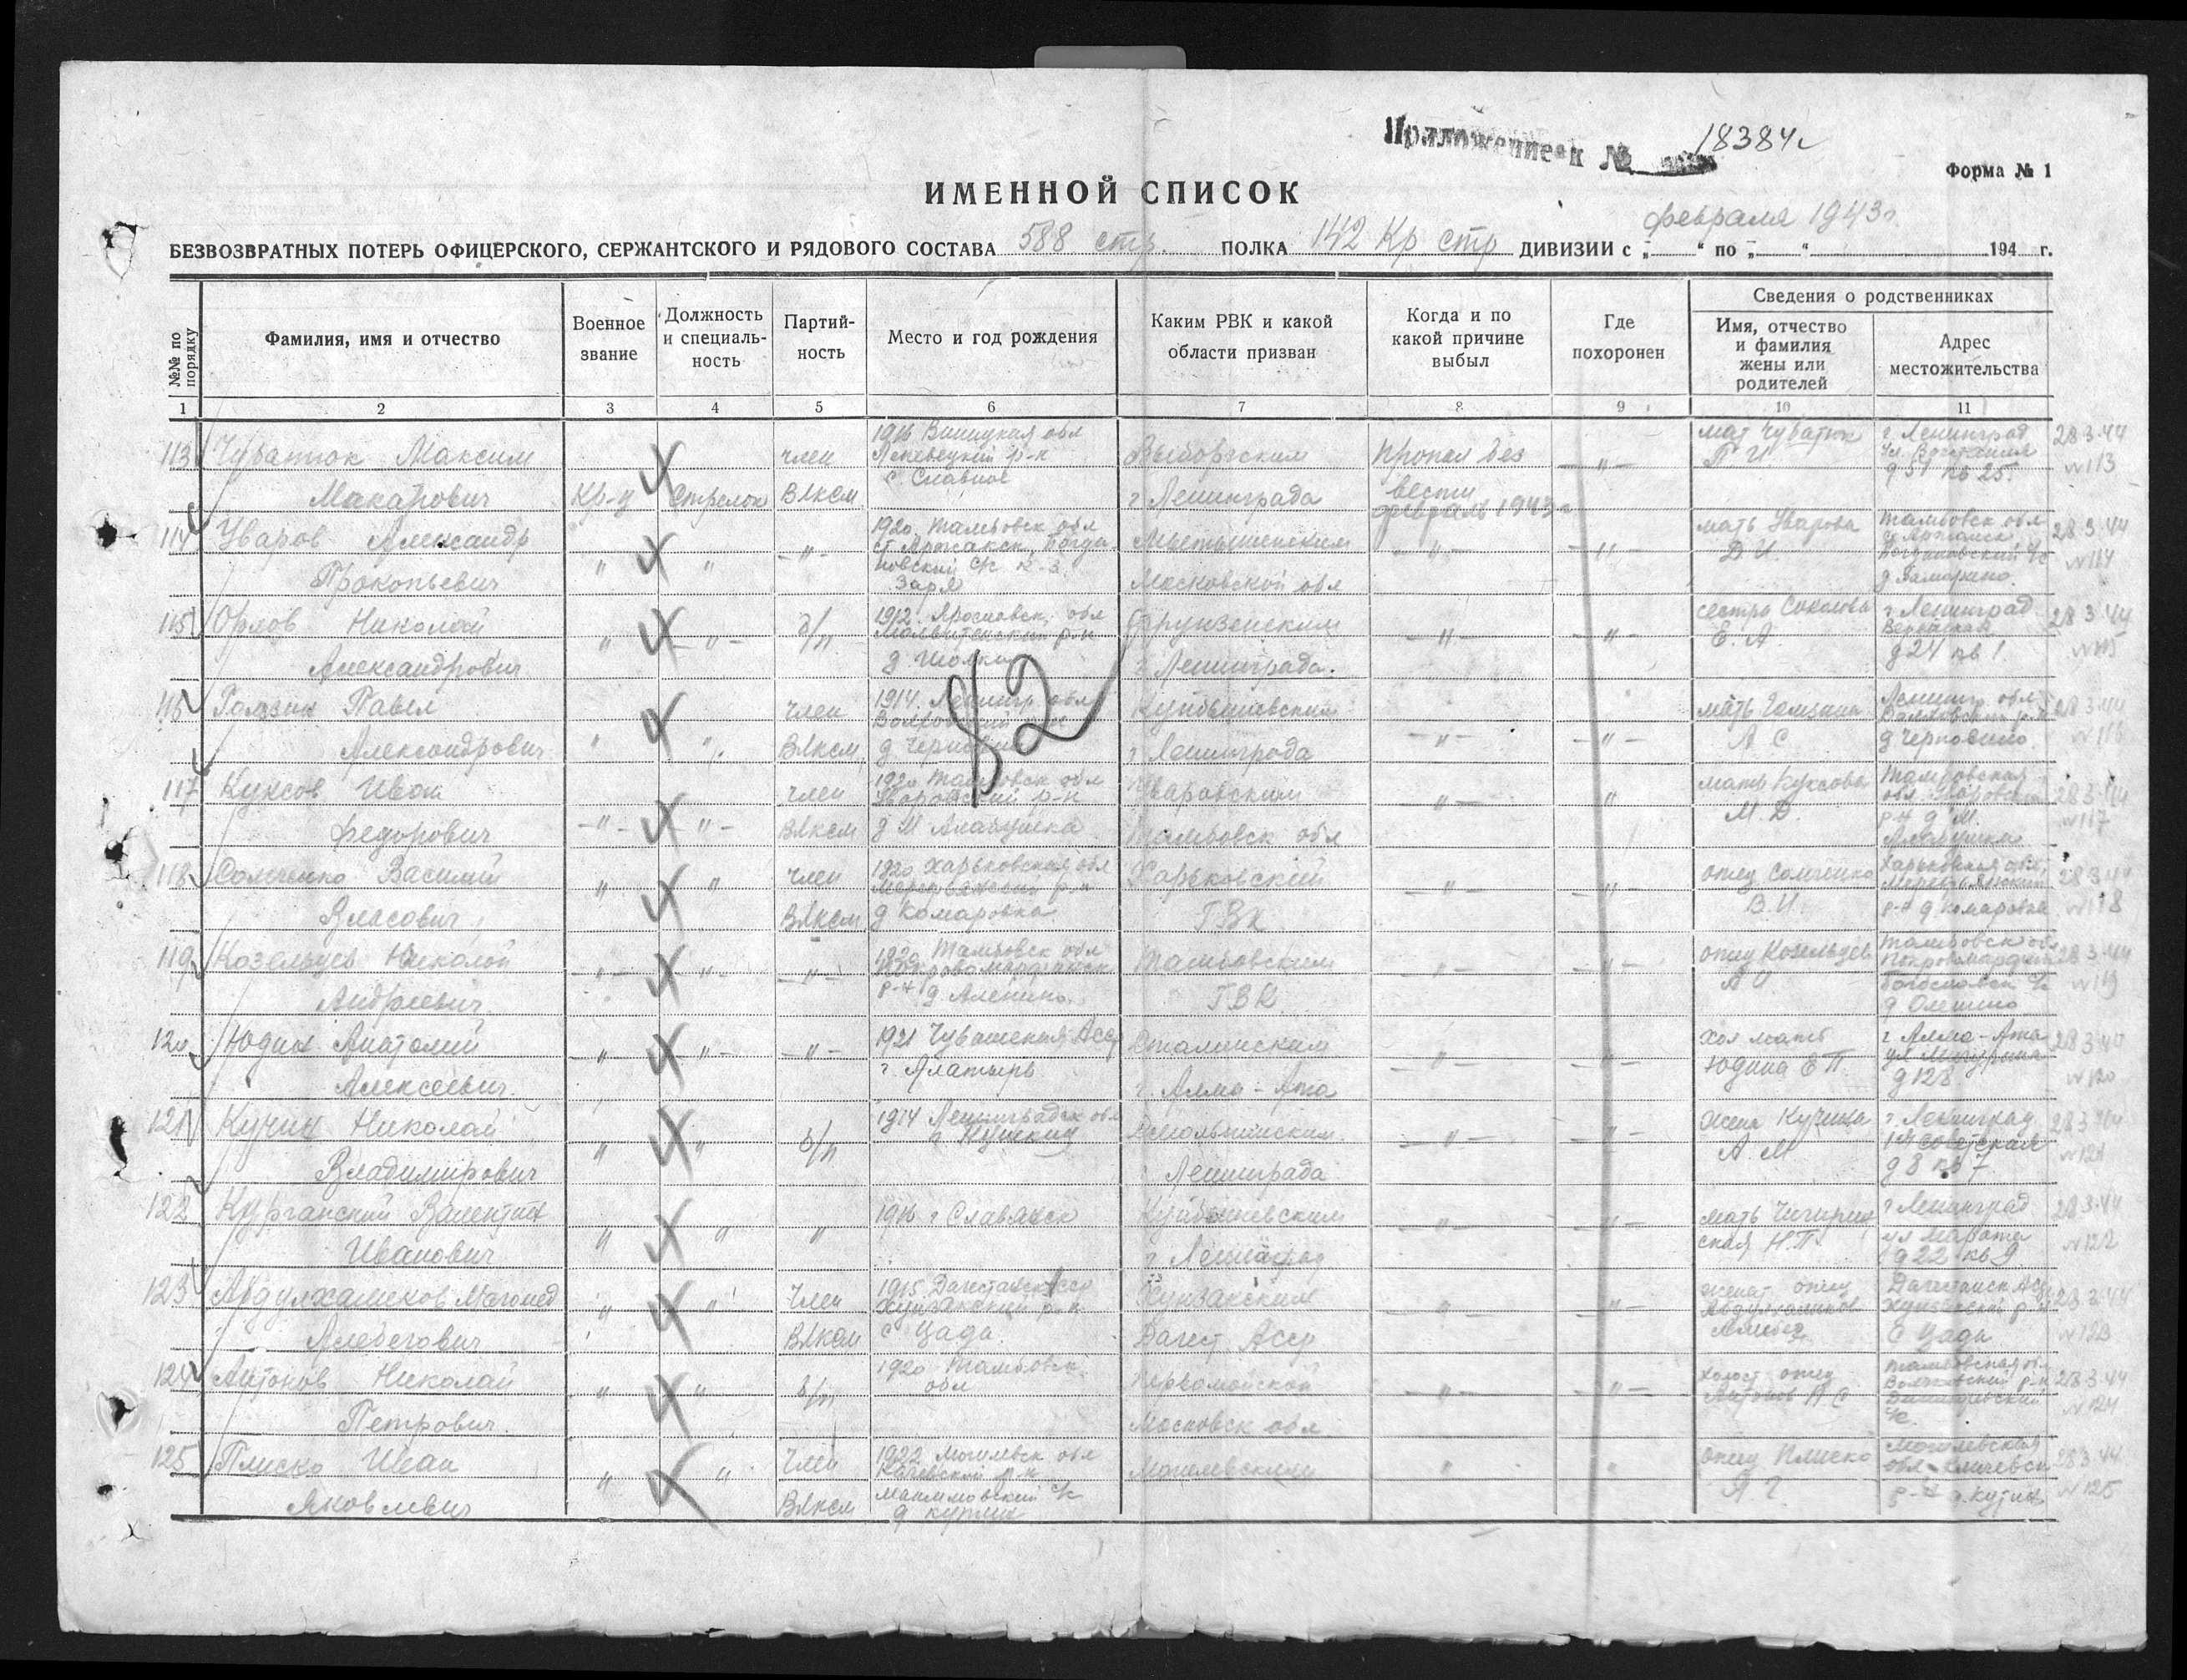 Приложение к № 18384с
Форма № 1
ИМЕННОЙ СПИСОК
февраля 1943г
БЕЗВОЗВРАТНЫХ ПОТЕРЬ ОФИЦЕРСКОГО, СЕРЖАНТСКОГО И РЯДОВОГО СОСТАВА 588 стр. ПОЛКА 142 Кр стр ДИВИЗИИ с „ “ по „ “ 194 г.
№№ по порядку
Фамилия, имя и отчество
Военное звание
Должность и специаль-ность
Партий-ность
Место и год рождения
Каким РВК и какой области призван
Когда и по какой причине выбыл
Где похоронен
Сведения о родственниках
Имя, отчество и фамилия жены или родителей
Адрес местожительства
1 2 3 4 5 6 7 8 9 10 11
113 Чуватюк Максим Макарович Кр-ц Стрелок член ВЛКСМ 1916 Винницкая обл р-н с. Славное Выборгским г Ленинграда Пропал без вести февраль 1943г —"— мат Чуватюк П. И. г. Ленинград Ул. Восстания д 51 кв 25. 28.3.44 №113
114 Уваров Александр Прокопьевич " " —"— 1920 Тамбовск обл с/с к-з Заря Мытищенским Московской обл —"— —"— мать Уварова Д И. Тамбовск обл 28.3.44 №114
115 Орлов Николай Александрович " —"— б/п 1912 Ярославск. обл р-н Фрунзенским г Ленинграда. —"— —"— сестра Соколова Е. А. г Ленинград д 24 кв 1 28.3.44 №115
116 Галзин Павел Александрович " " член ВЛКСМ 1914 Ленингр обл Волховский р-н Куйбышевским г Ленинграда —"— —"— мать А С Ленингр обл Волховский р-н д Черновино 28.3.44 №116
82
117 Куксов Иван Федорович —"— —"— член ВЛКСМ 1920 Тамбовск обл Уваровский р-н д М Алабушка Уваровским Тамбовск обл —"— " мать Куксова М. Д. Тамбовская обл Уваровск р-н д М. Алабушка 28.3.44 №117
118 Сомченко Василий Власович " " член ВЛКСМ 1920 Харьковская обл р-н д Комаровка Харьковский ГВК —"— —"— отец Сомченко В. И. Харьковская обл р-н д Комаровка 28.3.44 №118
119 Козельцев Николай Андреевич —"— —"— —"— 1920 Тамбовск обл р-н д Аленино Тамбовским ГВК —"— —"— отец Козельцев А И Тамбовск обл д Оленино 28.3.44 №119
120 Юдин Анатолий Алексеевич —"— —"— —"— 1921 Чувашская Асср г Алатырь Сталинским г. Алма-Ата —"— —"— хол мать Юдина Е П. г Алма-Ата ул Мичурина д 128 28.3.44 №120
121 Кучин Николай Владимирович " " б/п 1914 Ленинградск обл г. Пушкин Смольнинским г Ленинграда —"— —"— жена Кучина А. М г. Ленинград советская д 8 кв 7 28.3.44 №121
122 Курганский Валентин Иванович " " " 1916 г Славянск Куйбышевским г Ленинград —"— —"— мать Чигиринская Н. П г Ленинград ул Марата д 22 кв 9 28.3.44 №122
123 Абдулхаликов Магомед Алебегович " " Член ВЛКСМ 1915 Дагестанск Асср Хунзахский р-н с Цада Хунзахским Дагест. Асср —"— —"— женат отец Абдулхаликов Алибег Дагестанск Асср Хунзахский р-н с Цада 28.3.44 №123
124 Антонов Николай Петрович " " б/п 1920 Тамбовск. обл Первомайской Московск обл —"— —"— холост отец Антонов П. С Тамбовская обл р-н с/с. 28.3.44 №124
125 Плиско Иван Яковлевич " " Член ВЛКСМ 1922 Могилевск обл Кличевский р-н с/с Могилевским " " отец Плиско Я Г Могилевская обл Кличевск р-н 28.3.44 №125